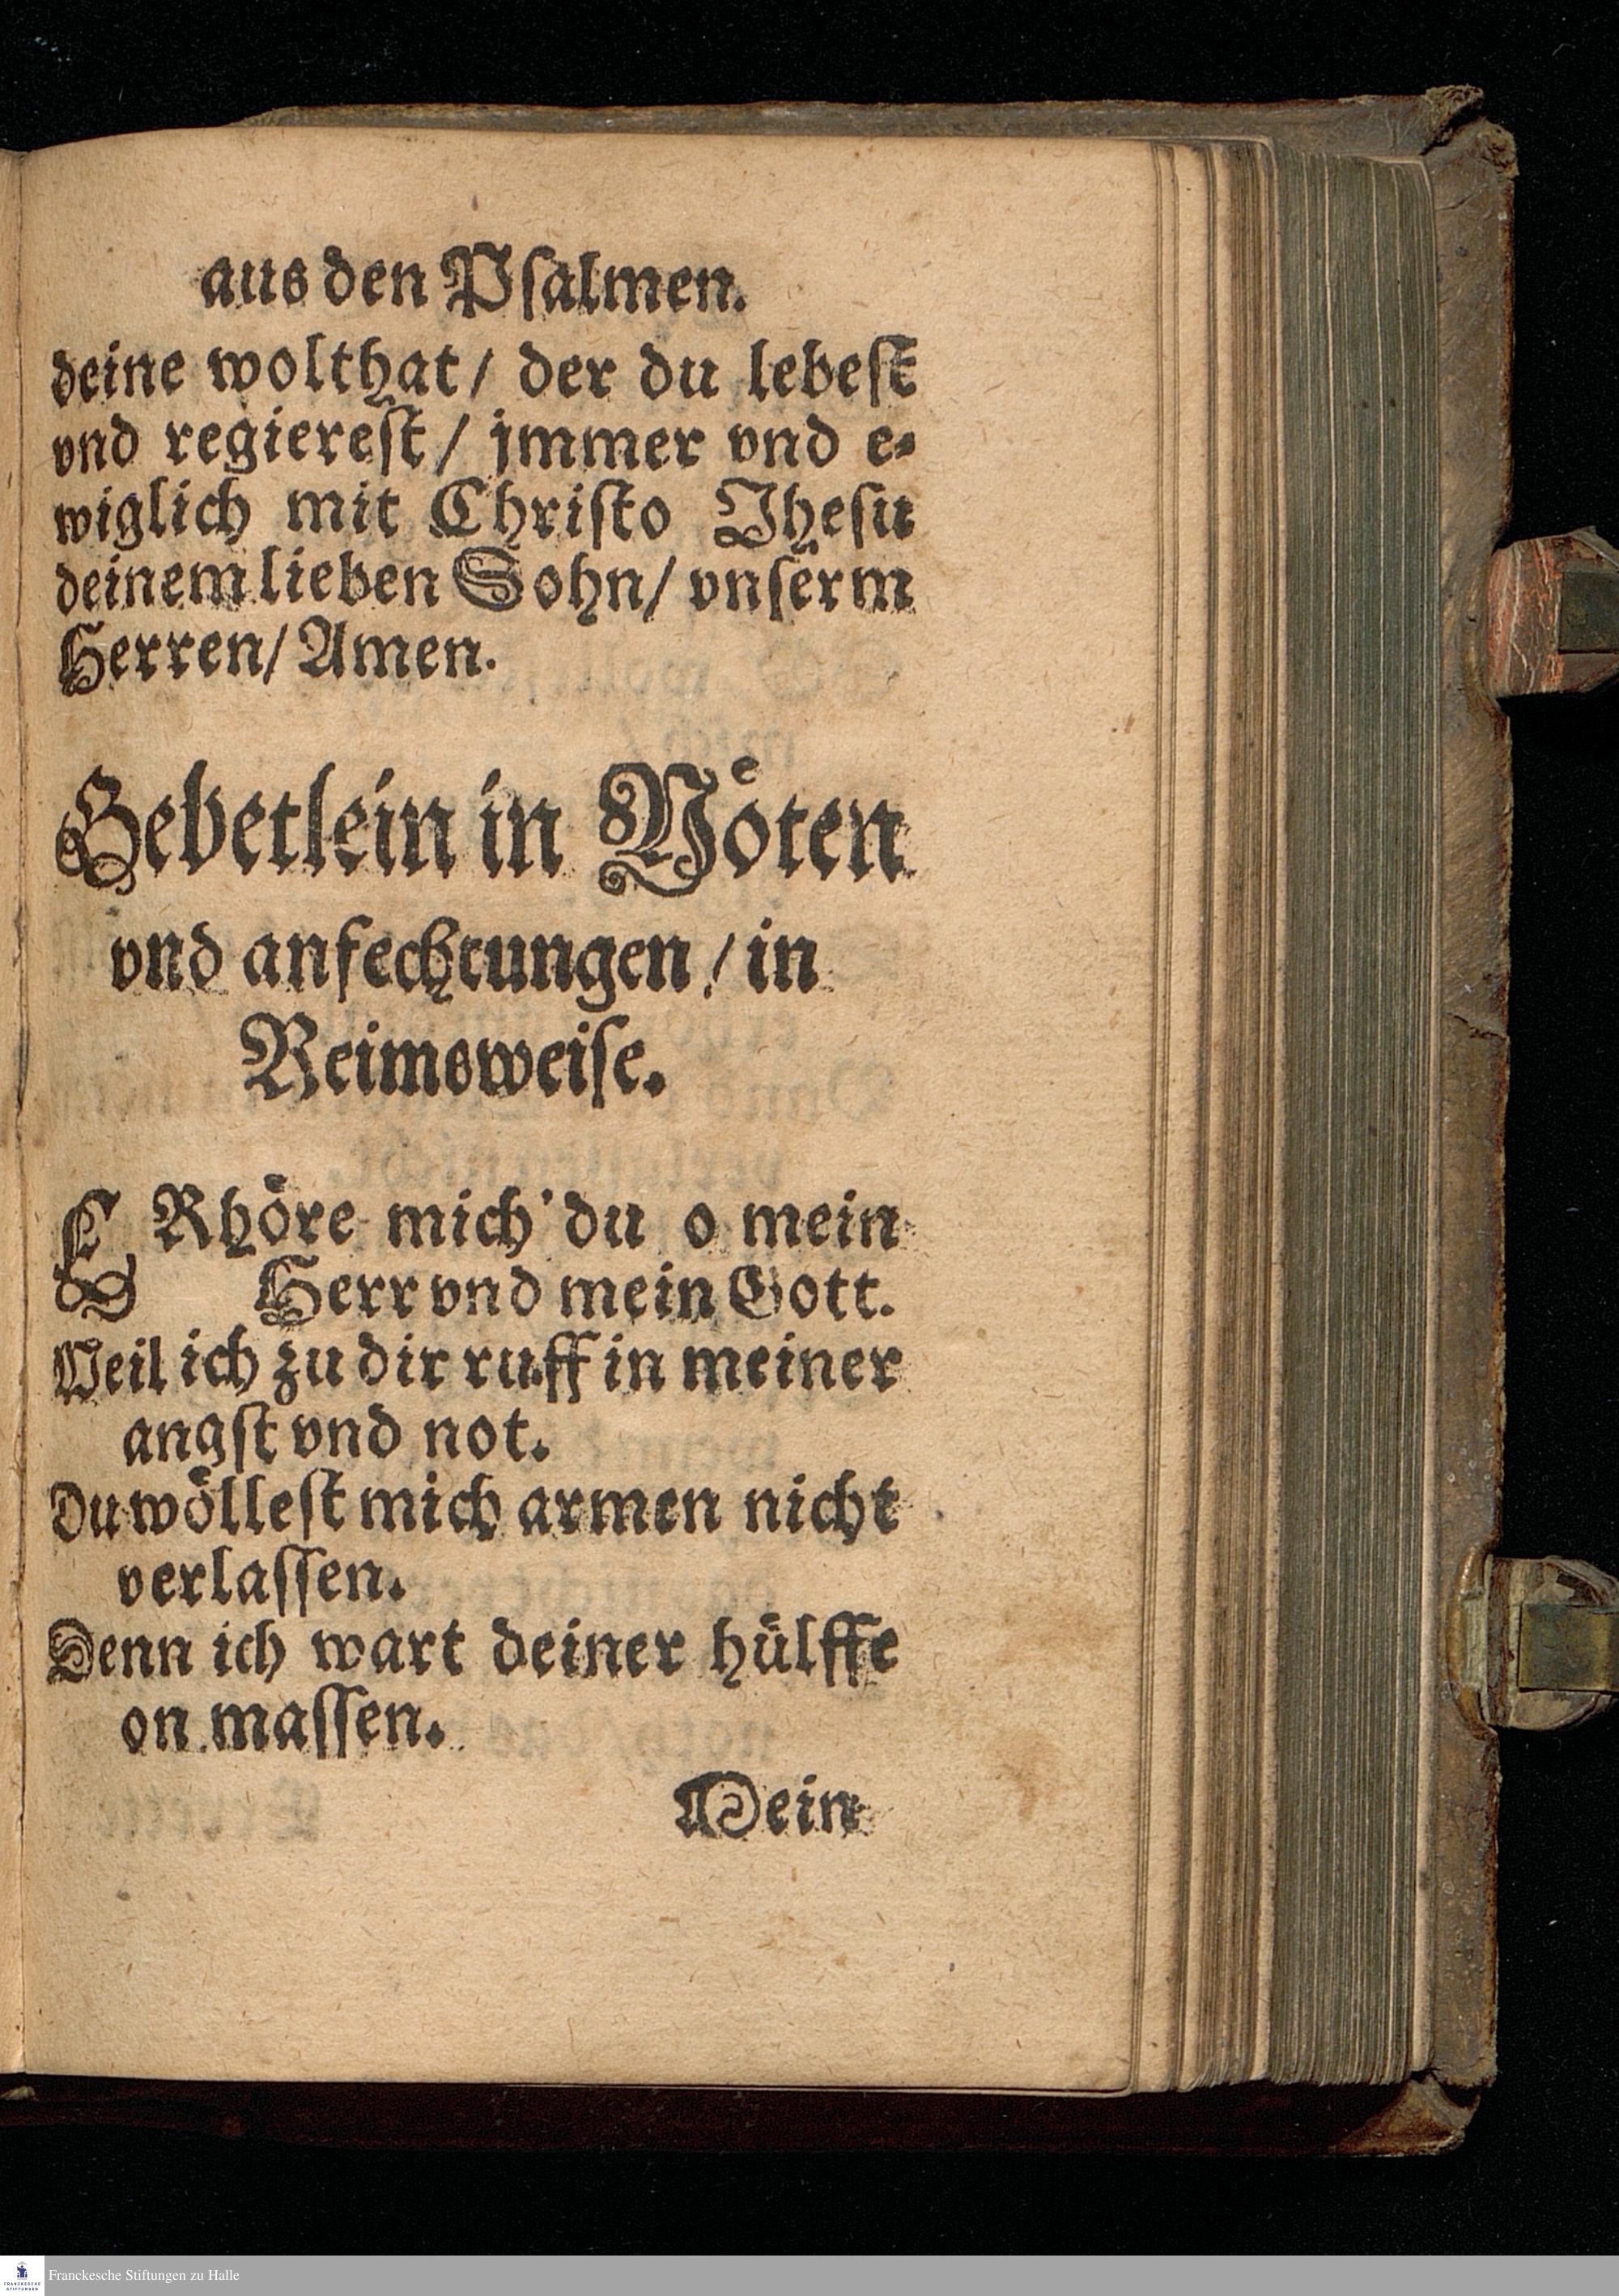 aus den Pſalmen.
deine wolthat/ der du lebeſt
vnd regiereſt/ jmmer vnd e⸗
wiglich mit Chriſto Jheſu
deinem lieben Sohn/ vnſerm
Herren/ Amen.
Gebetlein in Nöten
vnd anfechtungen/ in
Reimsweiſe.
ERhöre mich du o mein
Herr vnd mein Gott.
Weil ich zu dir ruff in meiner
angſt vnd not.
Du wölleſt mich armen nicht
verlaſſen.
Denn ich wart deiner hülffe
on maſſen.
Dein
Franckesche Stiftungen zu Halle
FRANCKESCHE
STIFTUNGEN